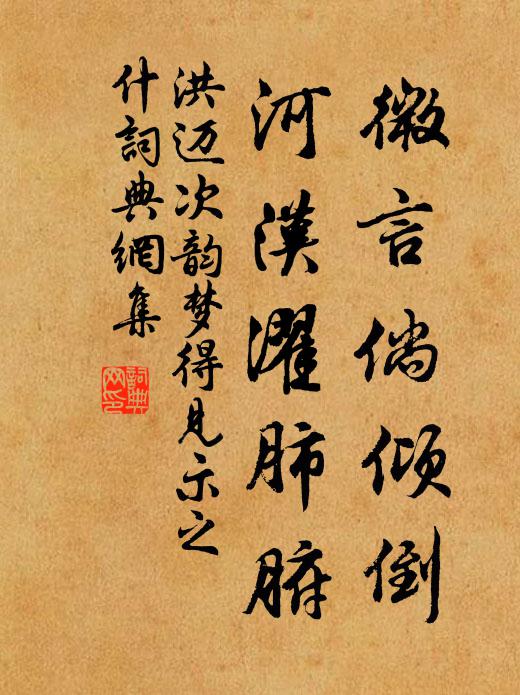 微言倘倾倒
河漢濯肺腑
洪迈次韵梦得見示之
什詞典網集
詞典网印